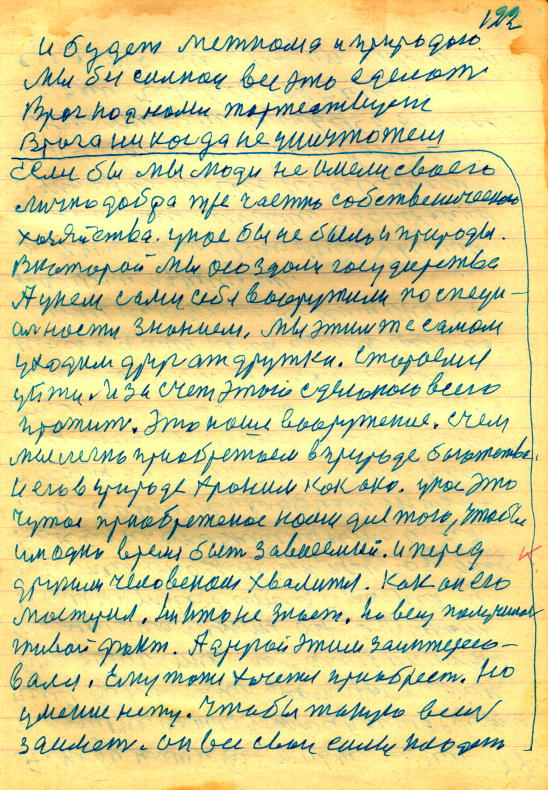 122
и будет меткома и природою
мы бы силной все это сделоть
Враг по дноми торжествует
Врага никогда не уничтожеш
Если бы мы люди не имели своего
лично добра же частно собственическою
хозяйства. унас бы не было и природы.
В которой мы создали государства
А унем сами себя вооружили по специ-
алности знанием. мы этим же самом
уходим друг от дружки. Стараемся
уйти за счет этого сделоного всего
прожит. Это наше вооружение. с чем
мы легко приобретаем в природе богатства.
и его в природе храним как око. унас это
чутое приобретеное нами для того, чтобы
им одно время быт заваемый. и перед
другим человеком хвалится. как он его
мостерил. никто не знает. но вещ получилас
живой факт. А другой этим заинтересо-
вался. Ему тоже хочется приобрест. но
умение нету. Чтобы такую вещ
заимет. он все свои силы кладет